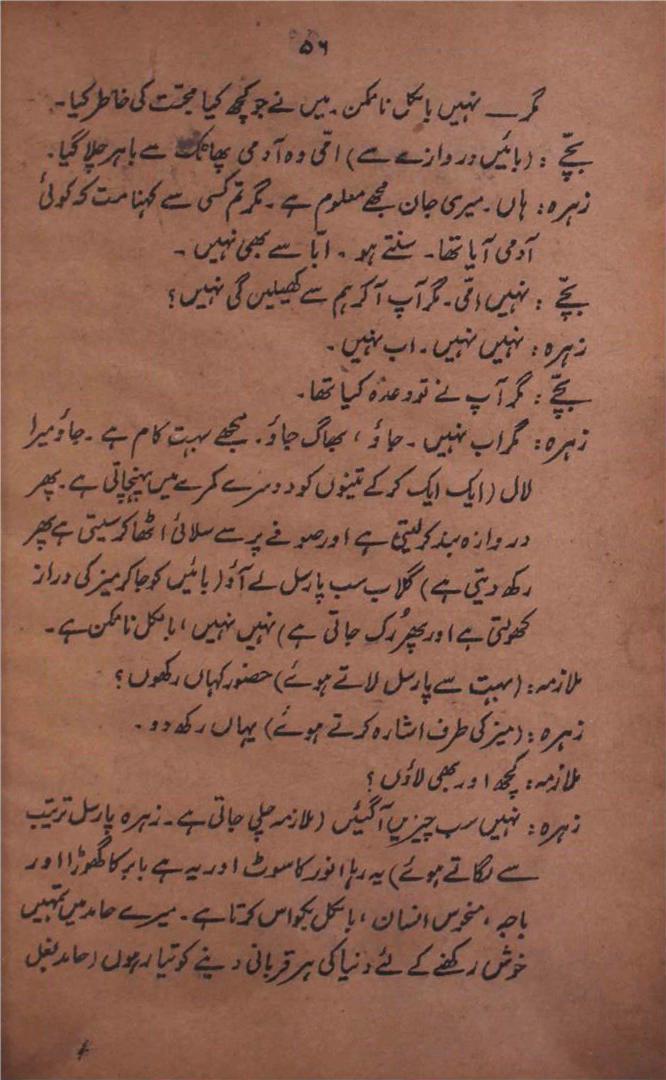 ۵۶
مگر — نہیں بالکل ناممکن۔ میں نے جو کچھ کیا محبّت کی خاطر کیا۔
بچّے : (بائیں دروازے سے) امّی وہ آدمی پھاٹک سے باہر چلا گیا۔
زہرہ : ہاں۔ میری جان مجھے معلوم ہے۔ مگر تم کسی سے کہنا مت کہ کوئی
آدمی آیا تھا۔ سنتے ہو۔ ابّا سے بھی نہیں۔
بچّے : نہیں امّی۔ مگر آپ آکر ہم سے کھیلیں گی نہیں؟
زہرہ : نہیں نہیں۔ اب نہیں۔
بچّے : مگر آپ نے تو وعدہ کیا تھا۔
زہرہ : مگر اب نہیں۔ جاؤ، بھاگ جاؤ۔ مجھے بہت کام ہے۔ جاؤ میرا
لال (ایک ایک کرکے تینوں کو دوسرے کمرے میں پہنچاتی ہے۔ پھر
دروازہ بند کر لیتی ہے اور صوفے پر سے سلائی اٹھا کر سیتی ہے پھر
رکھ دیتی ہے) گلاب سب پارسل لے آؤ (بائیں کو جاکر میز کی دراز
کھولتی ہے اور پھر رُک جاتی ہے) نہیں نہیں، بالکل ناممکن ہے۔
ملازمہ : (بہت سے پارسل لاتے ہوئے) حضور کہاں رکھوں؟
زہرہ : (میز کی طرف اشارہ کرتے ہوئے) یہاں رکھ دو۔
ملازمہ : کچھ اور بھی لاؤں؟
زہرہ : نہیں سب چیزیں آگئیں (ملازمہ چلی جاتی ہے۔ زہرہ پارسل ترتیب
سے لگاتے ہوئے) یہ رہا انور کا سوٹ اور یہ ہے بابر کا گھوڑا اور
باجہ، منحوس انسان، بالکل بکواس کرتا ہے۔ میرے حامد میں تمہیں
خوش رکھنے کے لئے دنیا کی ہر قربانی دینے کو تیار ہوں (حامد بغل